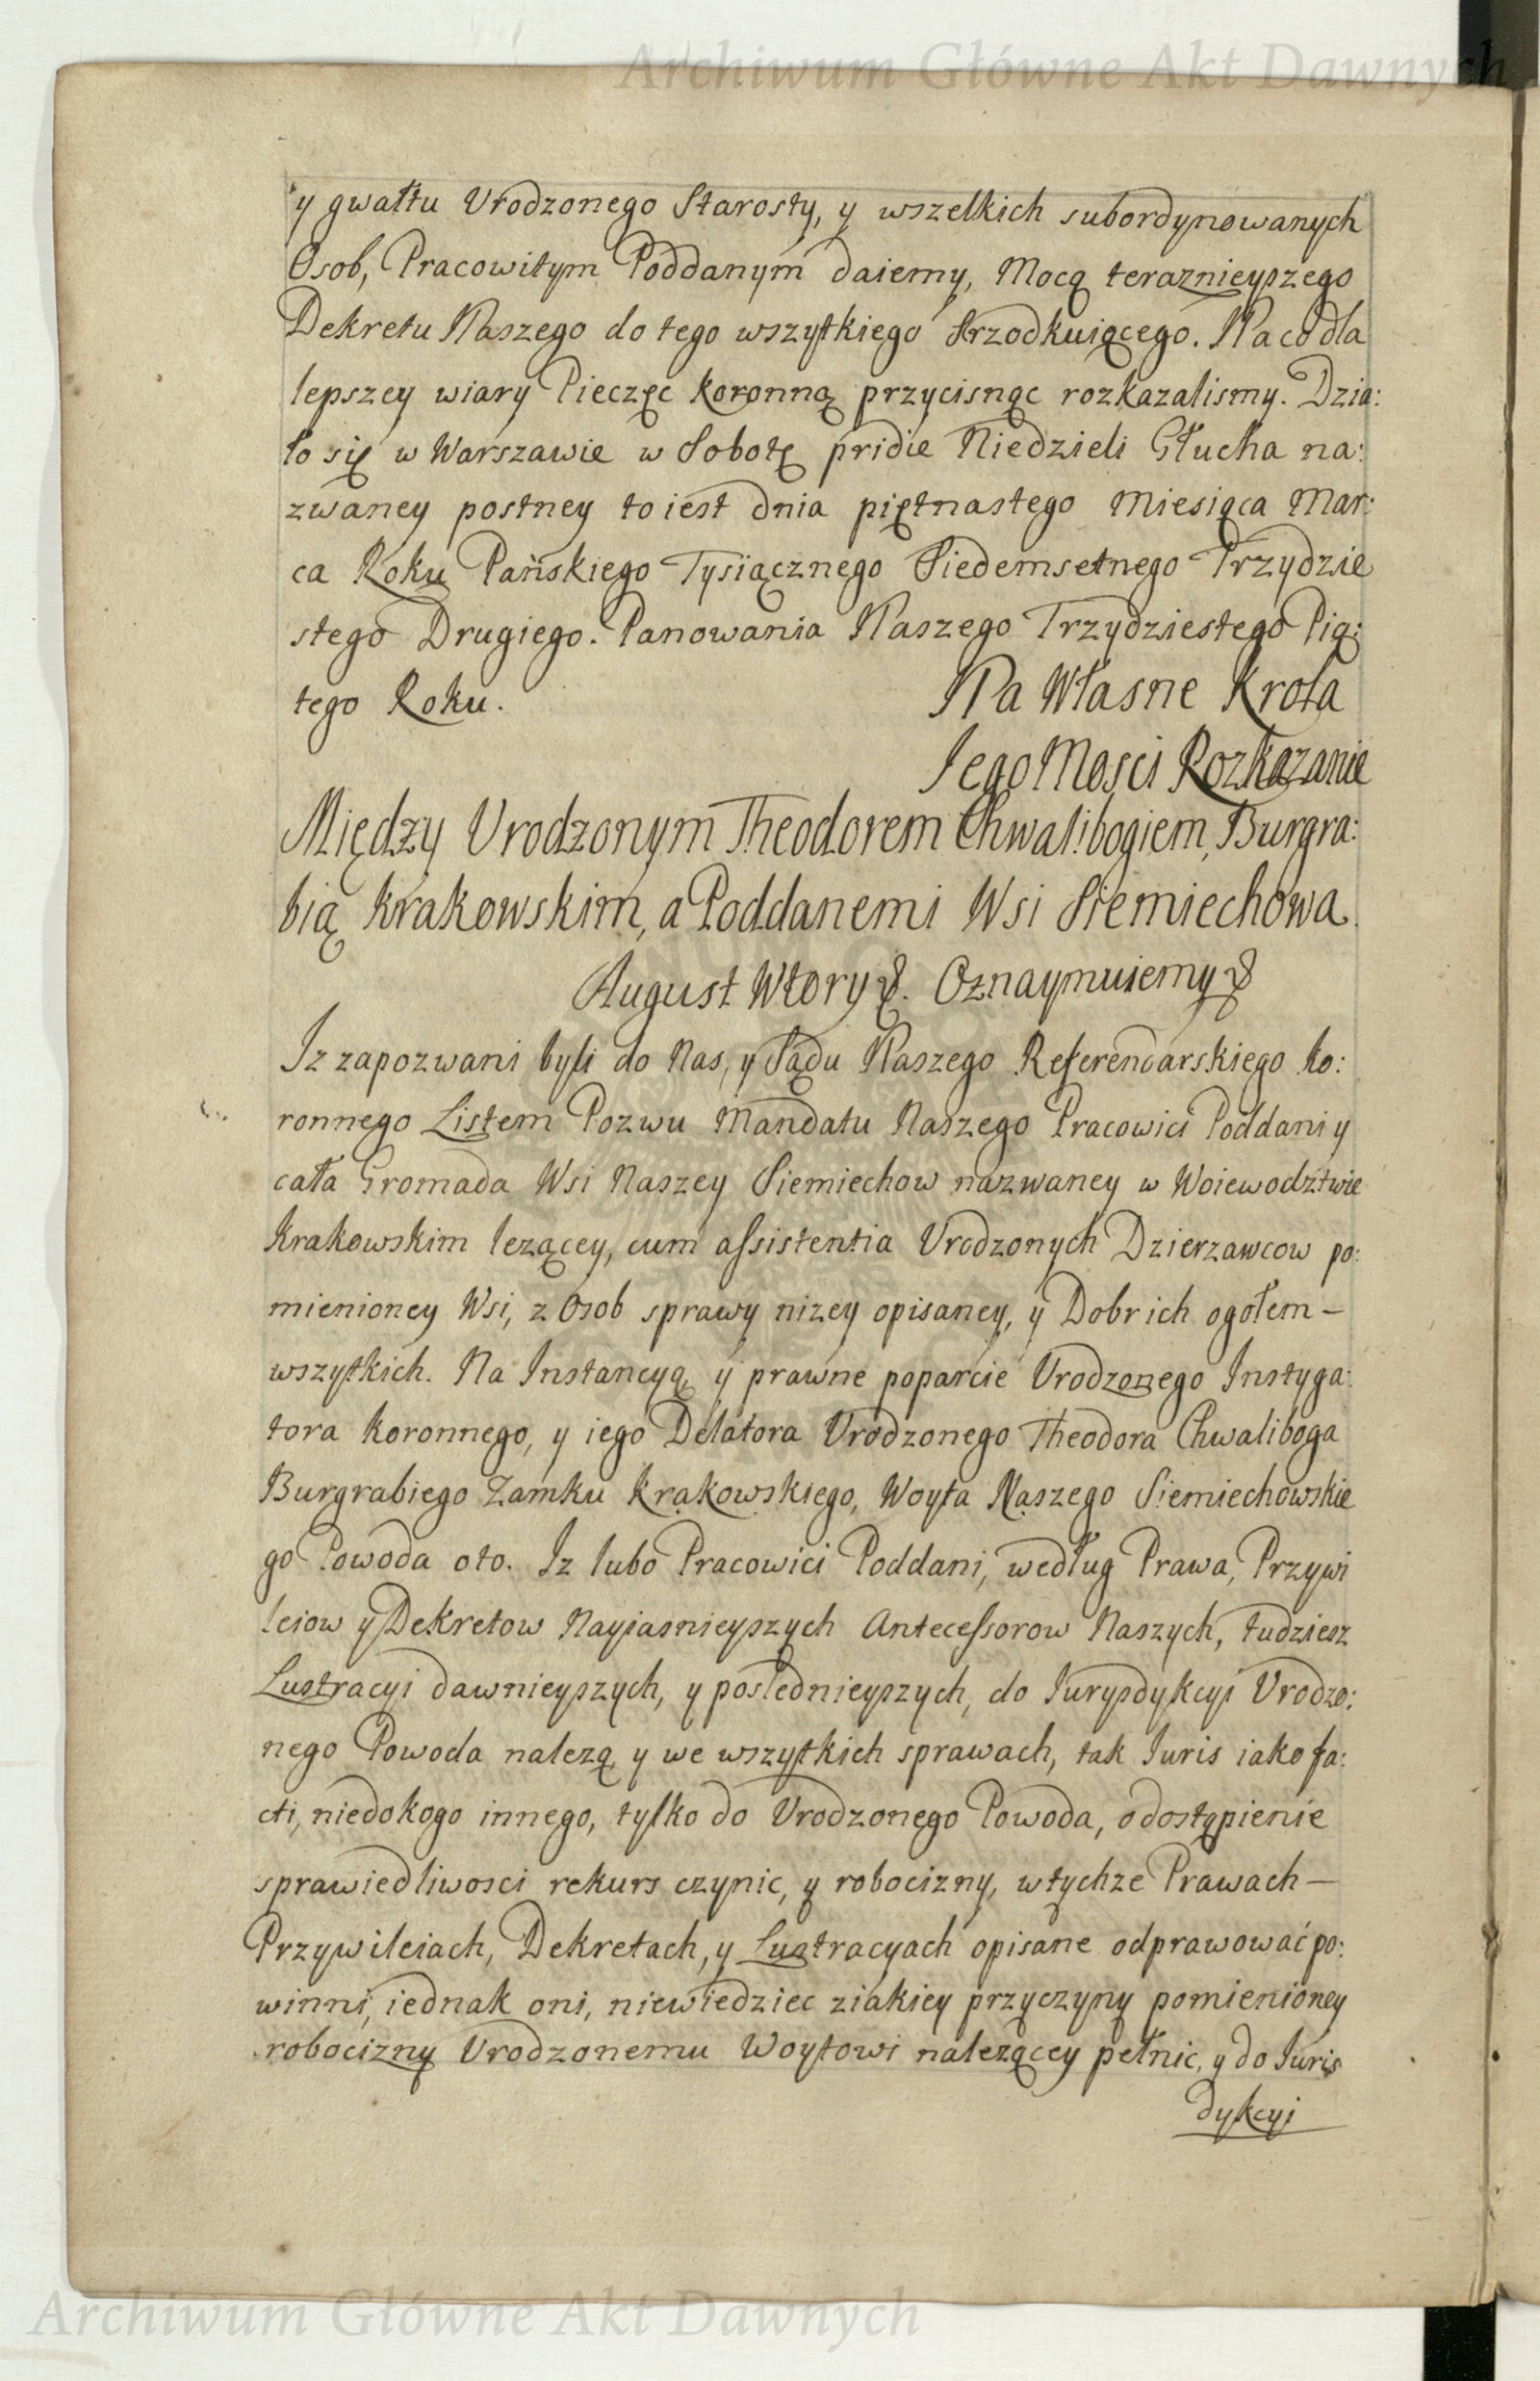 Archiwum Główne Akt Dawnych
y gwałtu Urodzonego Starosty, y wszelkich subordynowanych
Osob, Pracowitym Poddanym daiemy, Mocą teraznieyszego
Dekretu Naszego do tego wszytkiego srzodkuiącego. Na co dla
lepszey wiary Pieczęc koronną przycisnąc rozkazalismy. Dzia:
ło się w Warszawie w Sobotę pridie Niedzieli Głucha na:
zwaney postney to iest dnia piętnastego Miesiąca Mar:
ca Roku Pańskiego Tysiącznego Siedemsetnego Trzydzie
stego Drugiego. Panowania Naszego Trzydziestego Pią:
tego Roku.
Na Własne Krola
Jego Mosci Rozkazanie
Między Urodzonym Theodorem Chwalibogiem, Burgra:
bią krakowskim, a Poddanemi Wsi Siemiechowa.
August Wtory &. Oznaymuiemy &
Iz zapozwani byli do Nas, y Sądu Naszego Referendarskiego ko:
ronnego Listem Pozwu Mandatu Naszego Pracowici Poddani y
cała Gromada Wsi Naszey Siemiechow nazwaney w Woiewodztwie
Krakowskim lezącey, cum assistentia Urodzonych Dzierzawcow po:
mienioney Wsi, z Osob sprawy nizey opisaney, y Dobr ich ogołem –
wszytkich. Na Instancyą y prawne poparcie Urodzonego Instyga:
tora koronnego, y iego Delatora Urodzonego Theodora Chwaliboga
Burgrabiego Zamku Krakowskiego, Woyta Naszego Siemiechowskie
go Powoda oto. Iz lubo Pracowici Poddani, według Prawa, Przywi
leiow y Dekretow Nayiasnieyszych Antecessorow Naszych, tudziesz
Lustracyi dawnieyszych, y poslednieyszych, do Jurysdykcyi Urodzo:
nego Powoda nalezą y we wszytkich sprawach, tak Juris iako fa:
cti, niedokogo innego, tylko do Urodzonego Powoda, o dostąpienie
sprawiedliwosci rekurs czynic, y robocizny, wtychze Prawach –
Przywileiach, Dekretach, y Lustracyach opisane odprawować po:
winni, iednak oni, niewiedziec ziakiey przyczyny pomienioney
robocizny Urodzonemu Woytowi nalezącey pełnic, y do Juris
dykcyi
Archiwum Główne Akt Dawnych